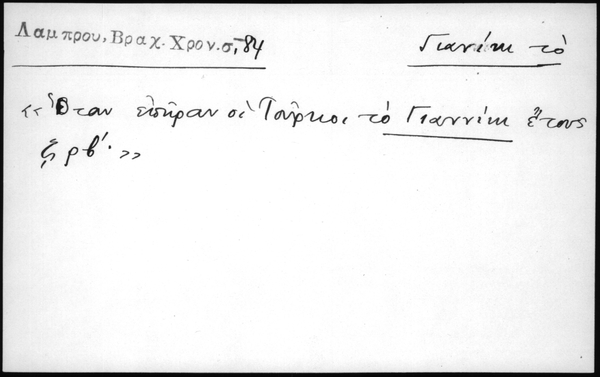 Λαμπρου, Βραχ. Χρον. σ. 84
Γιανίκι τὸ
«Ὅταν ἐπῆραν οἱ Τοῦρκοι τὸ Γιαννίκι ἔτους
ϛρβ΄.»